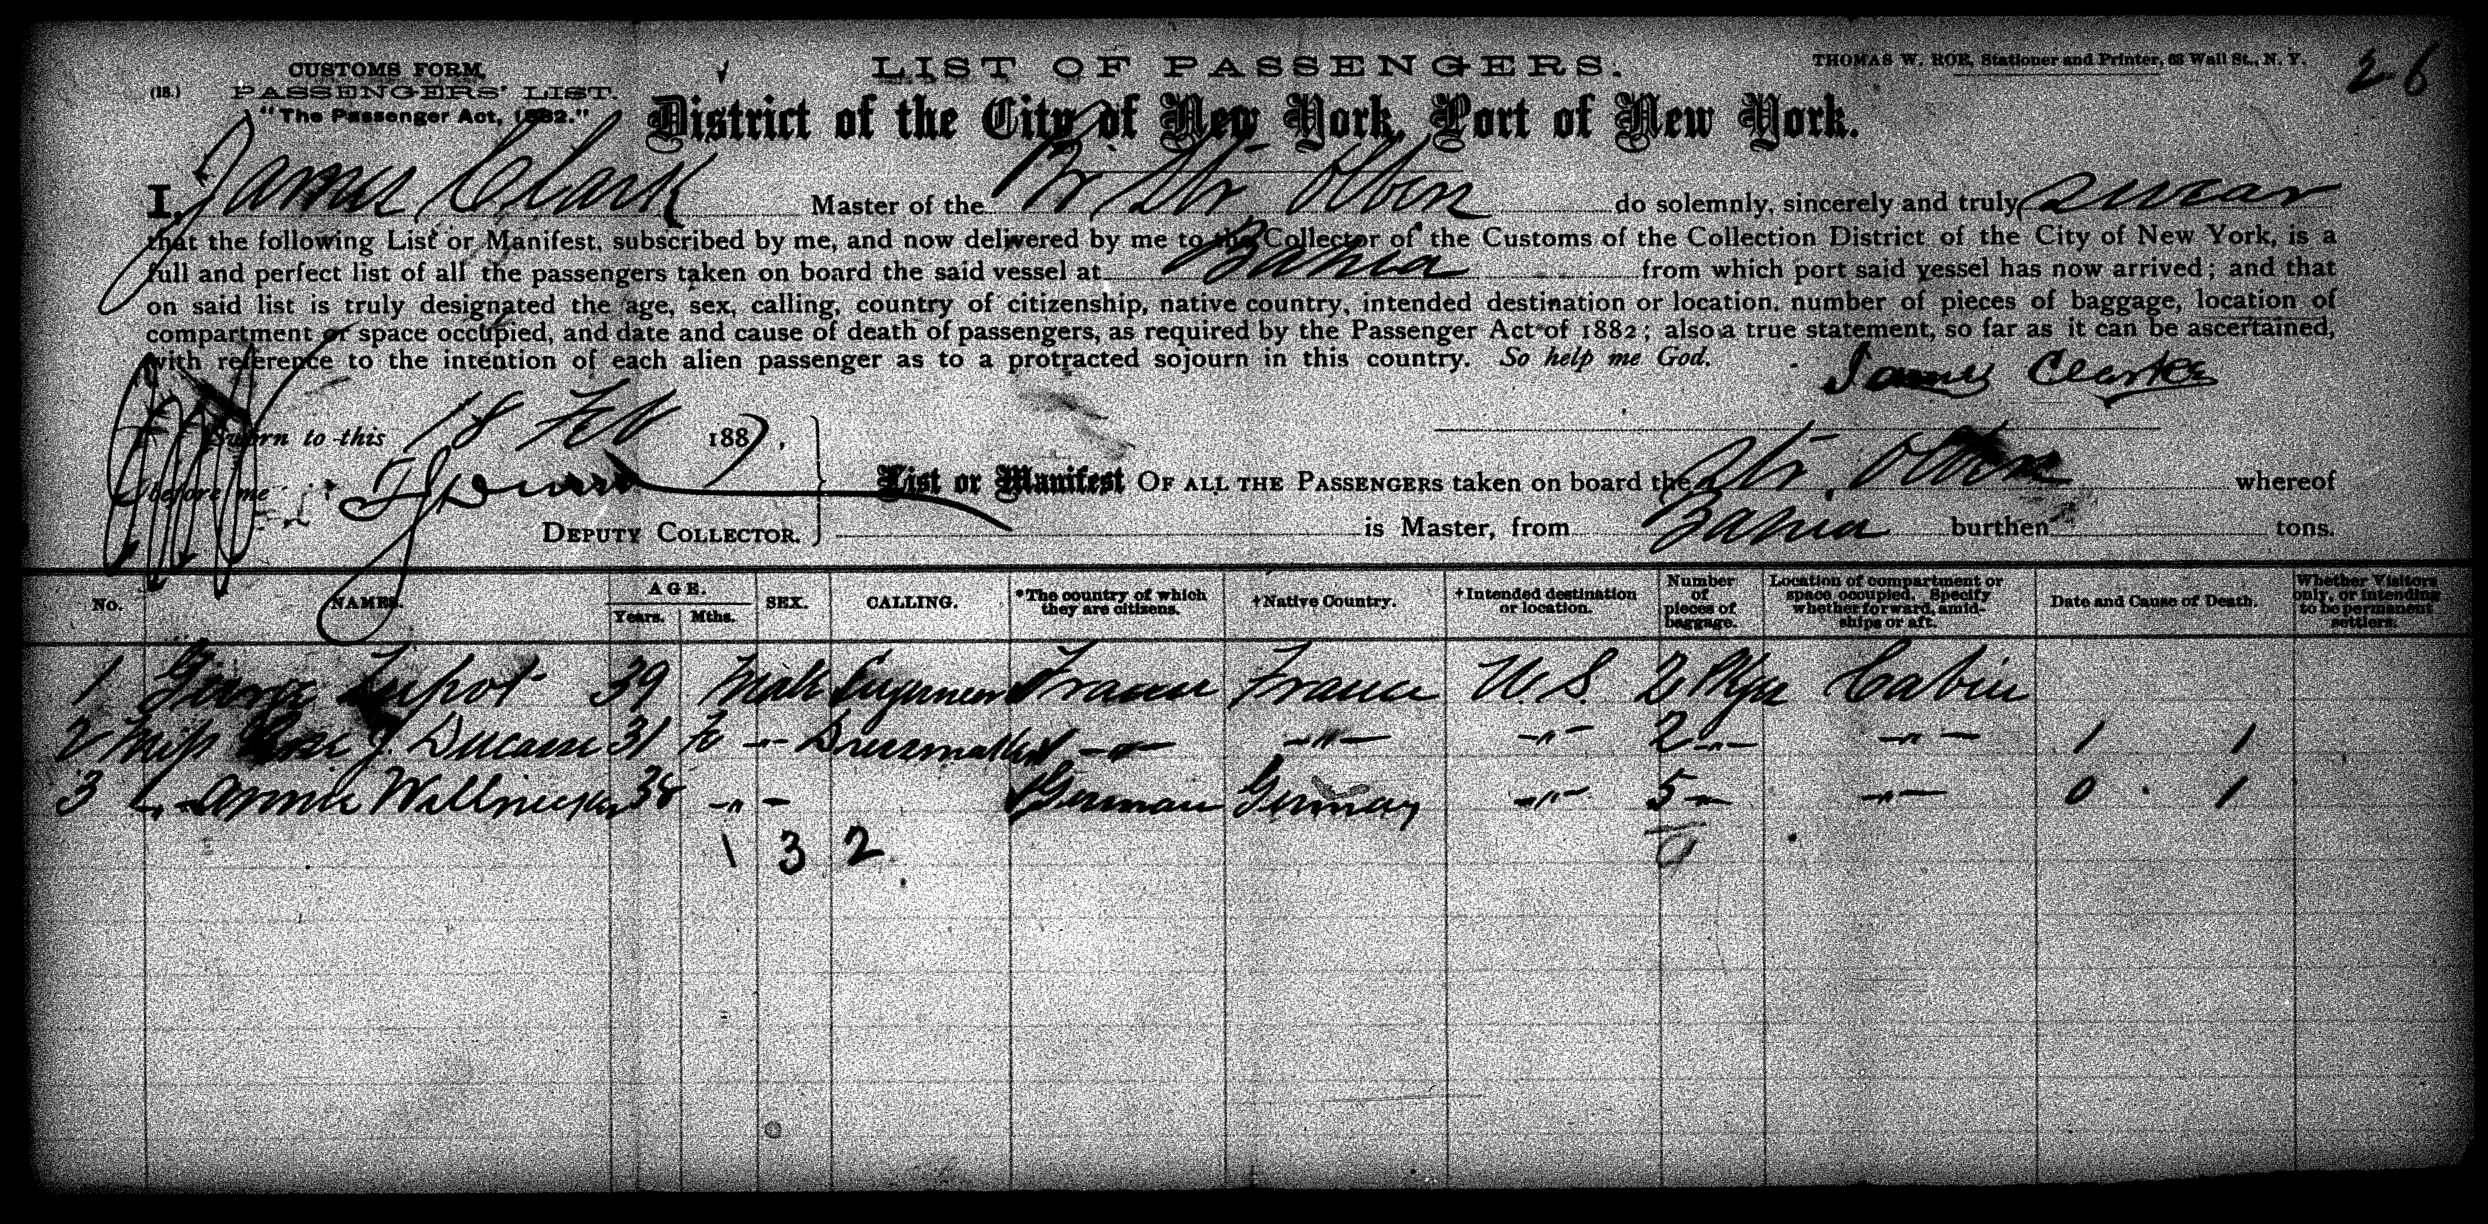 CUSTOMS FORM,
(18.) PASSENGERS' LIST.
"The Passenger Act, 1882."
LIST OF PASSENGERS.
THOMAS W. ROE, Stationer and Printer, 63 Wall St., N. Y.
26
District of the City of New York, Port of New York.
I, James Clark Master of the Br Str Olbers do solemnly, sincerely and truly swear
that the following List or Manifest, subscribed by me, and now delivered by me to the Collector of the Customs of the Collection District of the City of New York, is a
full and perfect list of all the passengers taken on board the said vessel at Bahia from which port said vessel has now arrived; and that
on said list is truly designated the age, sex, calling, country of citizenship, native country, intended destination or location, number of pieces of baggage, location of
compartment or space occupied, and date and cause of death of passengers, as required by the Passenger Act of 1882; also a true statement, so far as it can be ascertained,
with reference to the intention of each alien passenger as to a protracted sojourn in this country. So help me God.
James Clarke
Sworn to this 18 Feb 1887,
before me
DEPUTY COLLECTOR.
List or Manifest OF ALL THE PASSENGERS taken on board the Str. Olbers whereof
is Master, from Bahia burthen tons.
No. NAMES. AGE. Years. Mths. SEX. CALLING. *The country of which they are citizens. †Native Country. †Intended destination or location. Number of pieces of baggage. Location of compartment or space occupied. Specify whether forward, amidships or aft. Date and Cause of Death. Whether Visitors only, or intending to be permanent settlers.
1 George 39 Male France France U.S. 2 Pkgs Cabin
2 Miss Rose J. Ducasse 31 Fe -"- Dressmaker -"- -"- -"- 2 -"- -"- 1 1
3 " Annie 38 -"- German Germany -"- 5 -"- -"- 0 . 1
1 3 2